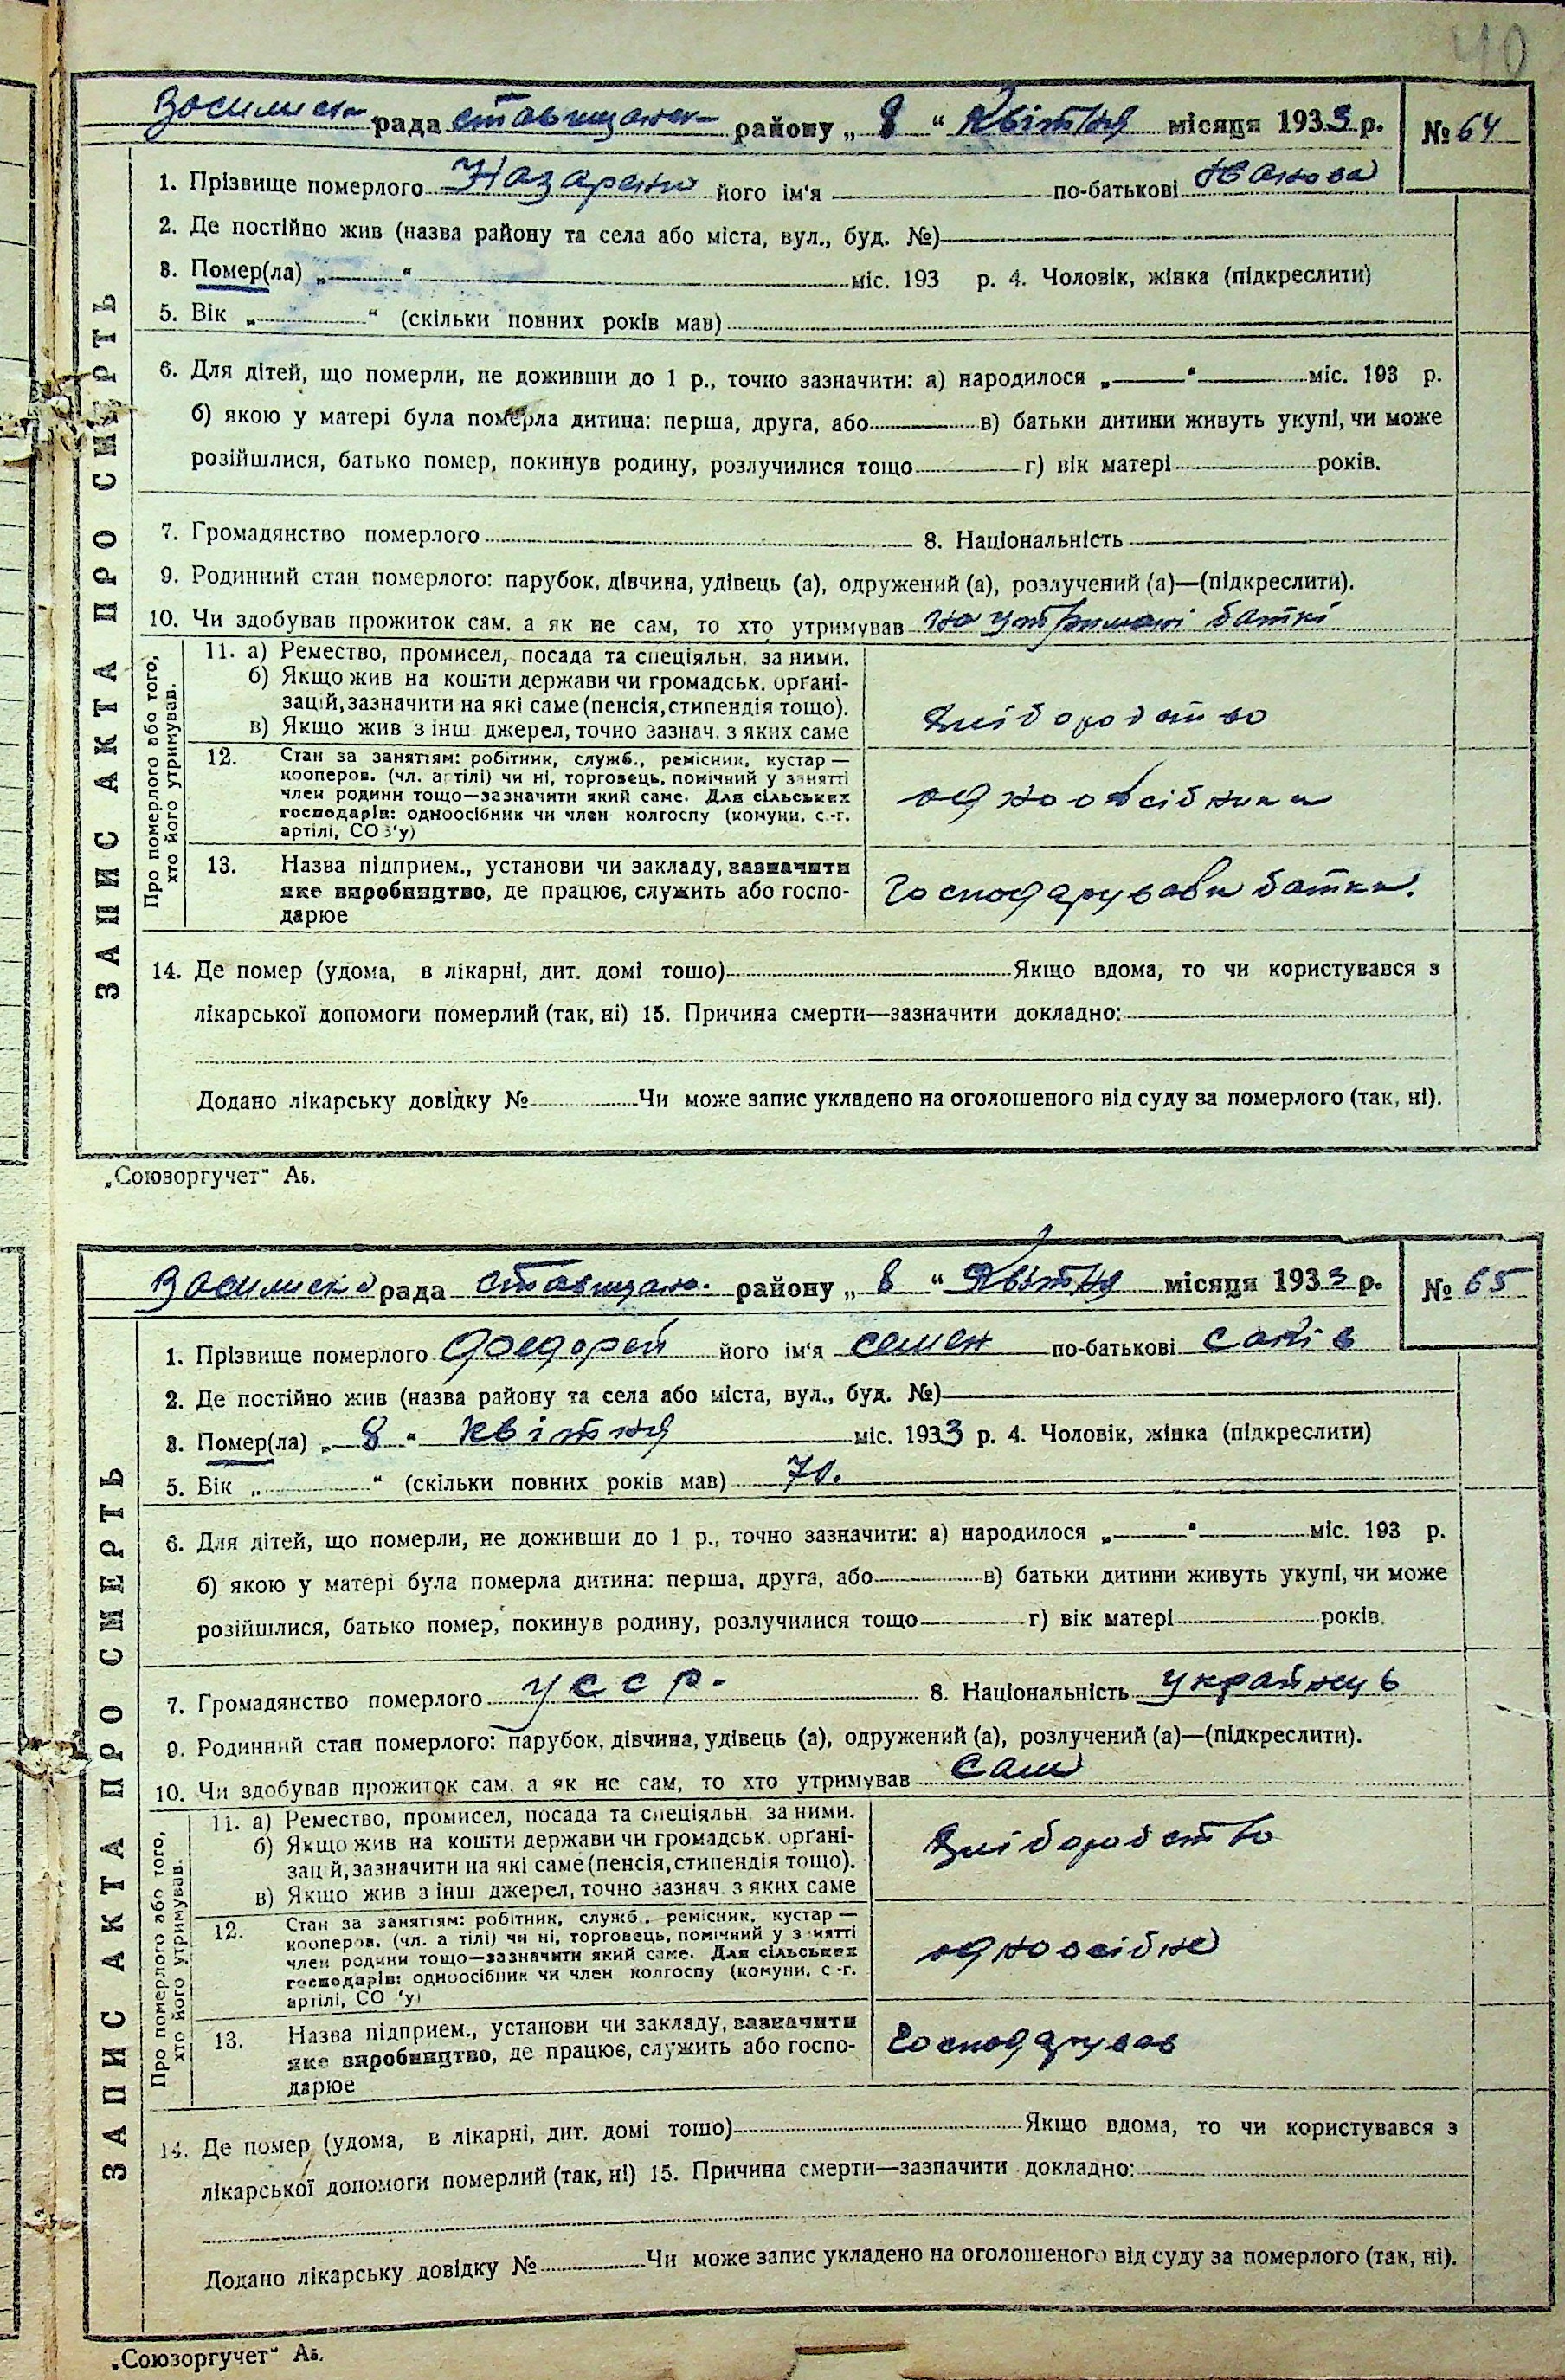 40
рада району „ 8 “ Квітня місяця 1933 р. № 64
1. Прізвище померлого Назаренко його ім'я по-батькові
2. Де постійно жив (назва району та села або міста, вул., буд. №)
3. Помер(ла) „ “ міс. 193 р. 4. Чоловік, жінка (підкреслити)
5. Вік „ “ (скільки повних років мав)
6. Для дітей, що померли, не доживши до 1 р., точно зазначити: а) народилося „ “ міс. 193 р.
б) якою у матері була померла дитина: перша, друга, або в) батьки дитини живуть укупі, чи може
розійшлися, батько помер, покинув родину, розлучилися тощо г) вік матері років.
7. Громадянство померлого 8. Національність
9. Родинний стан померлого: парубок, дівчина, удівець (а), одружений (а), розлучений (а)—(підкреслити).
10. Чи здобував прожиток сам, а як не сам, то хто утримував на утриманні батькі
11. а) Ремество, промисел, посада та спеціяльн. за ними.
б) Якщо жив на кошти держави чи громадськ. органі-
зацій, зазначити на які саме (пенсія, стипендія тощо).
в) Якщо жив з інш джерел, точно зазнач. з яких саме
хліборобство
12. Стан за заняттям: робітник, служб., ремісник, кустар —
кооперов. (чл. артілі) чи ні, торговець, помічний у занятті
член родини тощо—зазначити який саме. Для сільських
господарів: одноосібник чи член колгоспу (комуни, с.-г.
артілі, СОЗ'у)
одноосібники
13. Назва підприєм., установи чи закладу, зазначити
яке виробництво, де працює, служить або госпо-
дарює
Господарували батьки.
Про померлого або того,
хто його утримував.
14. Де помер (удома, в лікарні, дит. домі тошо) Якщо вдома, то чи користувався з
лікарської допомоги померлий (так, ні) 15. Причина смерти—зазначити докладно:
Додано лікарську довідку № Чи може запис укладено на оголошеного від суду за померлого (так, ні).
ЗАПИС АКТА ПРО СМЕРТЬ
„Союзоргучет“ Аб.
рада району „ 8 “ Квітня місяця 1933 р. № 65
1. Прізвище померлого Федорей його ім'я семен по-батькові
2. Де постійно жив (назва району та села або міста, вул., буд. №)
3. Помер(ла) „ 8 “ квітня міс. 1933 р. 4. Чоловік, жінка (підкреслити)
5. Вік „ “ (скільки повних років мав) 70.
6. Для дітей, що померли, не доживши до 1 р., точно зазначити: а) народилося „ “ міс. 193 р.
б) якою у матері була померла дитина: перша, друга, або в) батьки дитини живуть укупі, чи може
розійшлися, батько помер, покинув родину, розлучилися тощо г) вік матері років.
7. Громадянство померлого УССР. 8. Національність українець
9. Родинний стан померлого: парубок, дівчина, удівець (а), одружений (а), розлучений (а)—(підкреслити).
10. Чи здобував прожиток сам, а як не сам, то хто утримував сам
11. а) Ремество, промисел, посада та спеціяльн. за ними.
б) Якщо жив на кошти держави чи громадськ. органі-
зацій, зазначити на які саме (пенсія, стипендія тощо).
в) Якщо жив з інш джерел, точно зазнач. з яких саме
хліборобство
12. Стан за заняттям: робітник, служб., ремісник, кустар —
кооперов. (чл. артілі) чи ні, торговець, помічний у занятті
член родини тощо—зазначити який саме. Для сільських
господарів: одноосібник чи член колгоспу (комуни, с.-г.
артілі, СОЗ'у)
одноосібне
13. Назва підприєм., установи чи закладу, зазначити
яке виробництво, де працює, служить або госпо-
дарює
Господарував
Про померлого або того,
хто його утримував.
14. Де помер (удома, в лікарні, дит. домі тошо) Якщо вдома, то чи користувався з
лікарської допомоги померлий (так, ні) 15. Причина смерти—зазначити докладно:
Додано лікарську довідку № Чи може запис укладено на оголошеного від суду за померлого (так, ні).
ЗАПИС АКТА ПРО СМЕРТЬ
„Союзоргучет“ Аб.